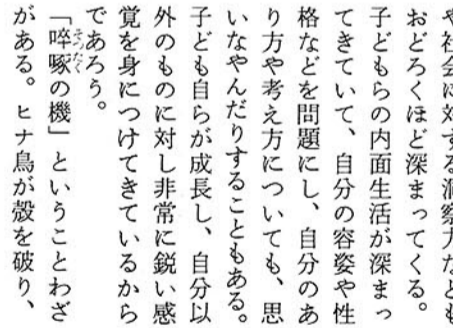 や社会に対する洞察力なども
おどろくほど深まってくる。
子どもらの内面生活が深まっ
てきていて、自分の容姿や性
格などを問題にし、自分のあ
り方や考え方についても、思
いなやんだりすることもある。
子ども自らが成長し、自分以
外のものに対し非常に鋭い感
覚を身につけてきているから
であろう。
「啐啄の機」ということわざ
がある。ヒナ鳥が殻を破り、